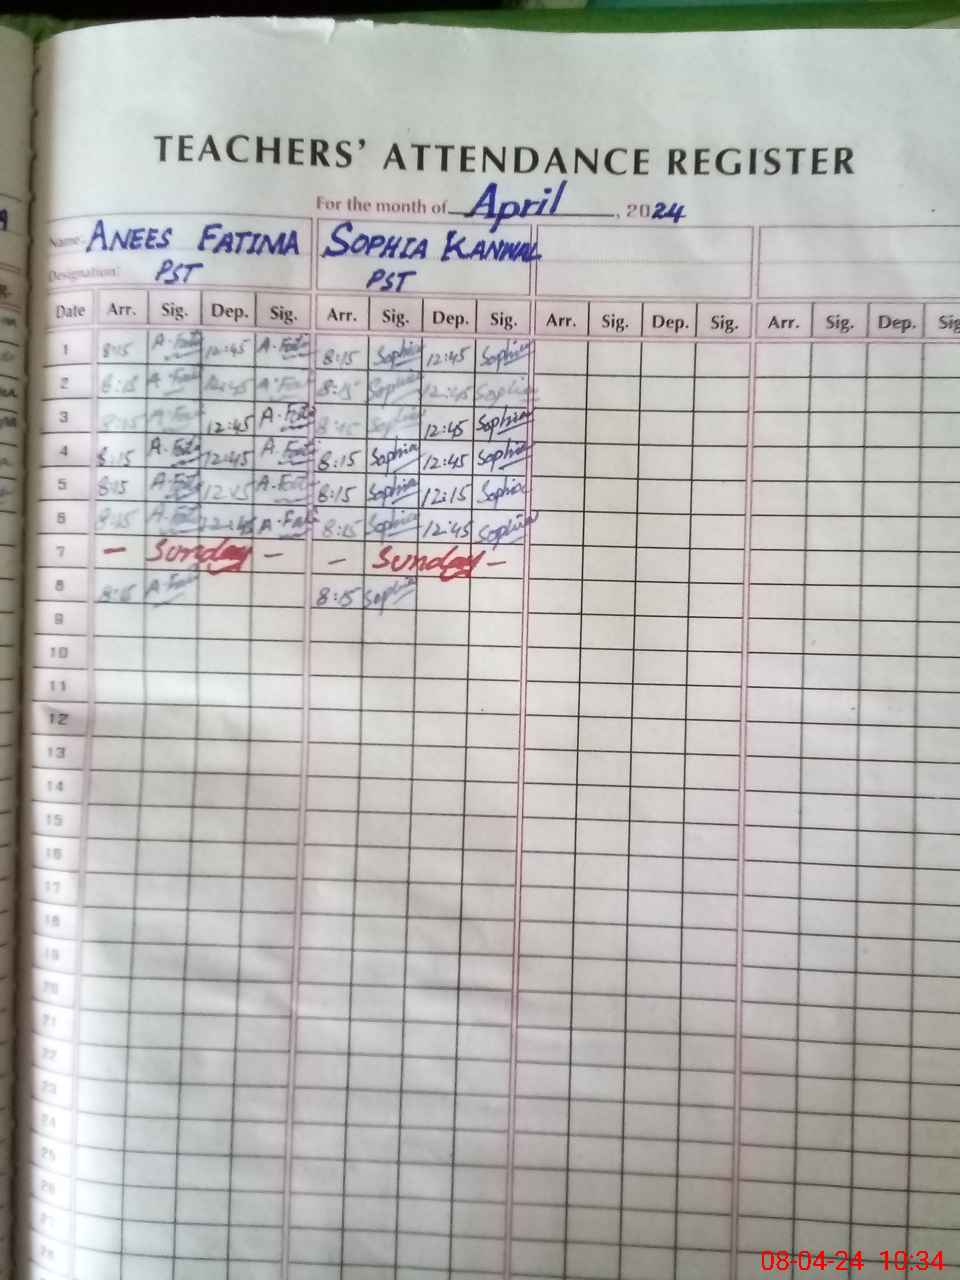 TEACHERS' ATTENDANCE REGISTER
For the month of April, 2024
Name: ANEES FATIMA SOPHIA KANWAL
Designation: PST PST
Date Arr. Sig. Dep. Sig. Arr. Sig. Dep. Sig. Arr. Sig. Dep. Sig. Arr. Sig. Dep. Sig
1 8:15 A.Fati 12:45 A.Fati 8:15 Sophia 12:45 Sophia
2 8:15 A.Fati 12:45 A.Fati 8:15 Sophia 12:45 Sophia
3 8:15 A.Fati 12:45 A.Fati 8:15 Sophia 12:45 Sophia
4 8:15 A.Fati 12:45 A.Fati 8:15 Sophia 12:45 Sophia
5 8:15 A.Fati 12:45 A.Fati 8:15 Sophia 12:15 Sophia
6 8:15 A.Fati 12:45 A.Fati 8:15 Sophia 12:45 Sophia
7 — Sunday — — Sunday —
8 8:15 A.Fati 8:15 Sophia
9
10
11
12
13
14
15
16
17
18
19
20
21
22
23
24
25
26
27
28
08-04-24 10:34